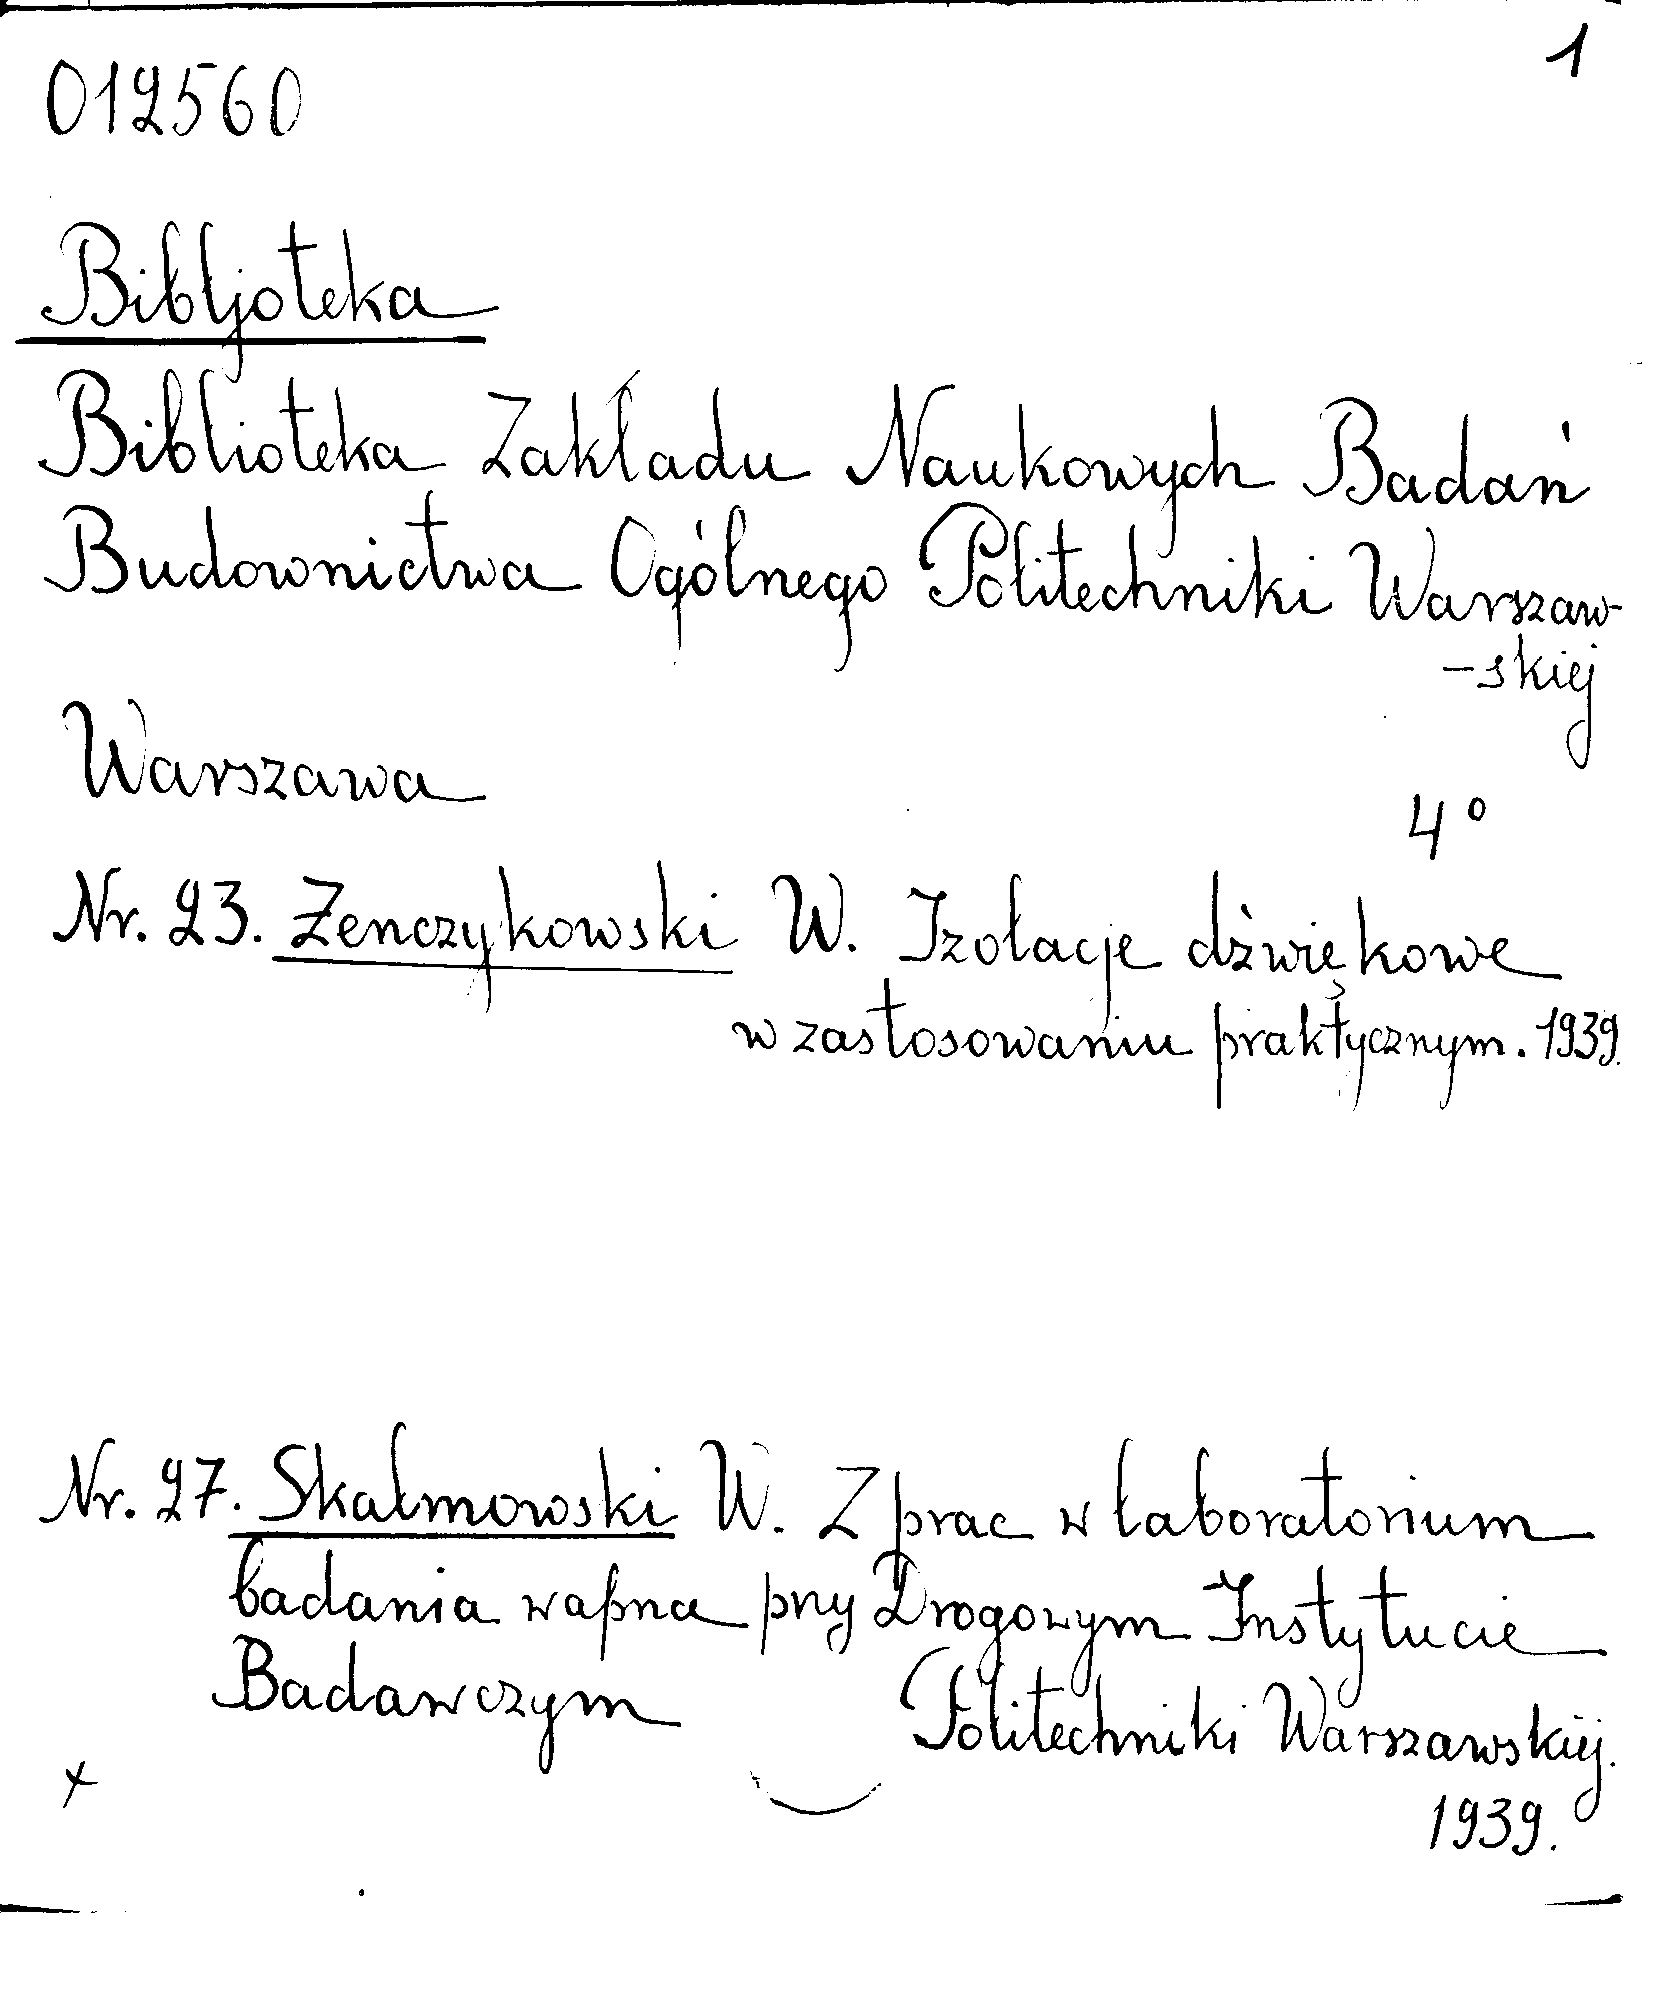 1
012560
Bibljoteka
Biblioteka Zakładu Naukowych Badań
Budownictwa Ogólnego Politechniki Warszaw-
-skiej
Warszawa
4°
Nr. 23. Żenczykowski W. Izolacje dźwiękowe
w zastosowaniu praktycznym. 1939.
Nr. 27. Skalmowski W. Z prac w laboratorium
badania wapna przy Drogowym Instytucie
Badawczym Politechniki Warszawskiej.
x
1939.